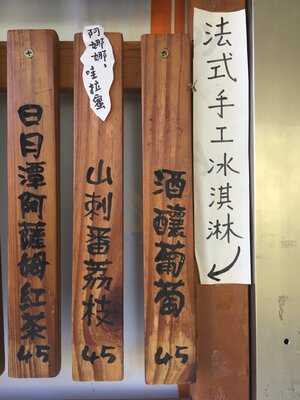 法式手工冰淇淋
酒釀葡萄
45
阿娜娜、
哇拉蜜
山刺番荔枝
45
日月潭阿薩姆紅茶
45